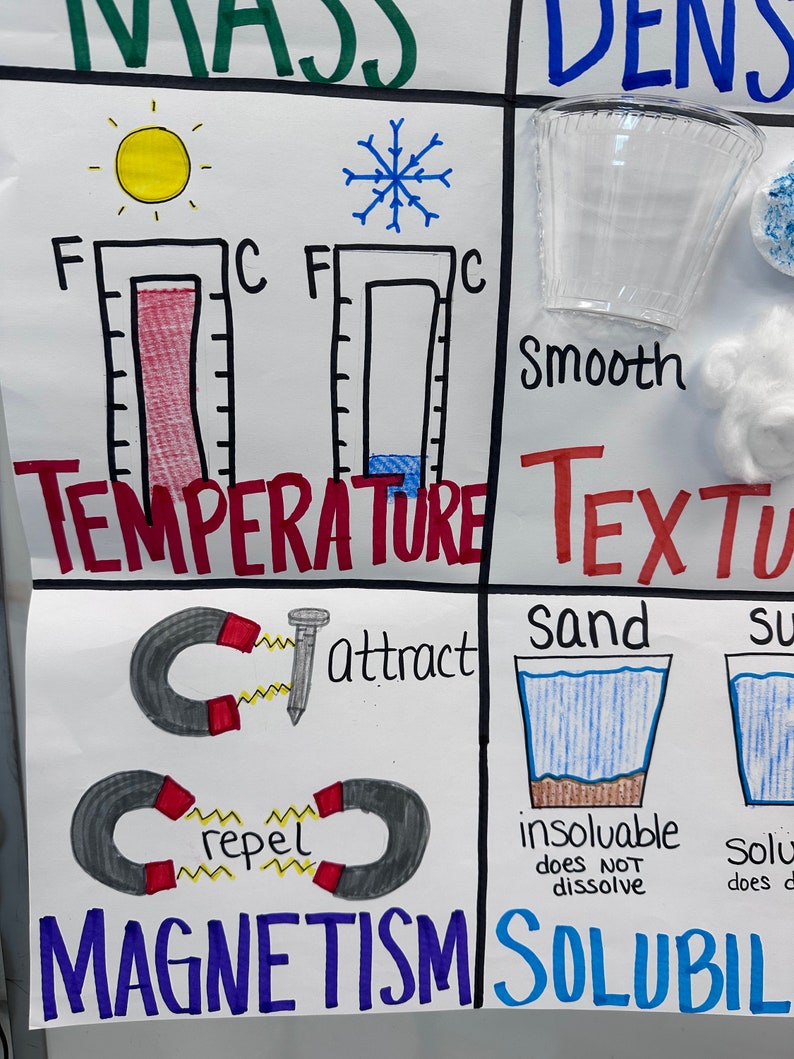 MASS
DENS
F C
F C
TEMPERATURE
smooth
TEXTU
attract
repel
MAGNETISM
sand
su
insoluable
does NOT
dissolve
solu
does d
SOLUBIL